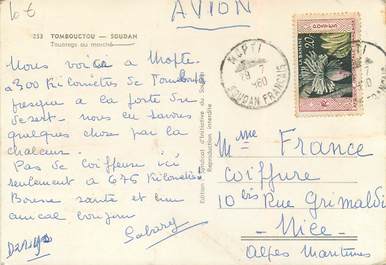 10 €
AVION
253 TOMBOUCTOU — SOUDAN
Touaregs au marché
MOPTI
SOUDAN FRANÇAIS
Nous voici a Mopti
a 300 Kilomètres de Tombouctou
presque a la porte du
desert. nous en savons
quelques chose par la
chaleur.
Pas de Coiffeuse ici
seulement a 675 Kilomètres.
Bonne santé et bien
amical bonjour
Edition Syndicat d'Initiative du Soudan
Reproduction interdite
Mme France
Coiffure
10 bis Rue Grimaldi
Nice
Alpes Maritimes